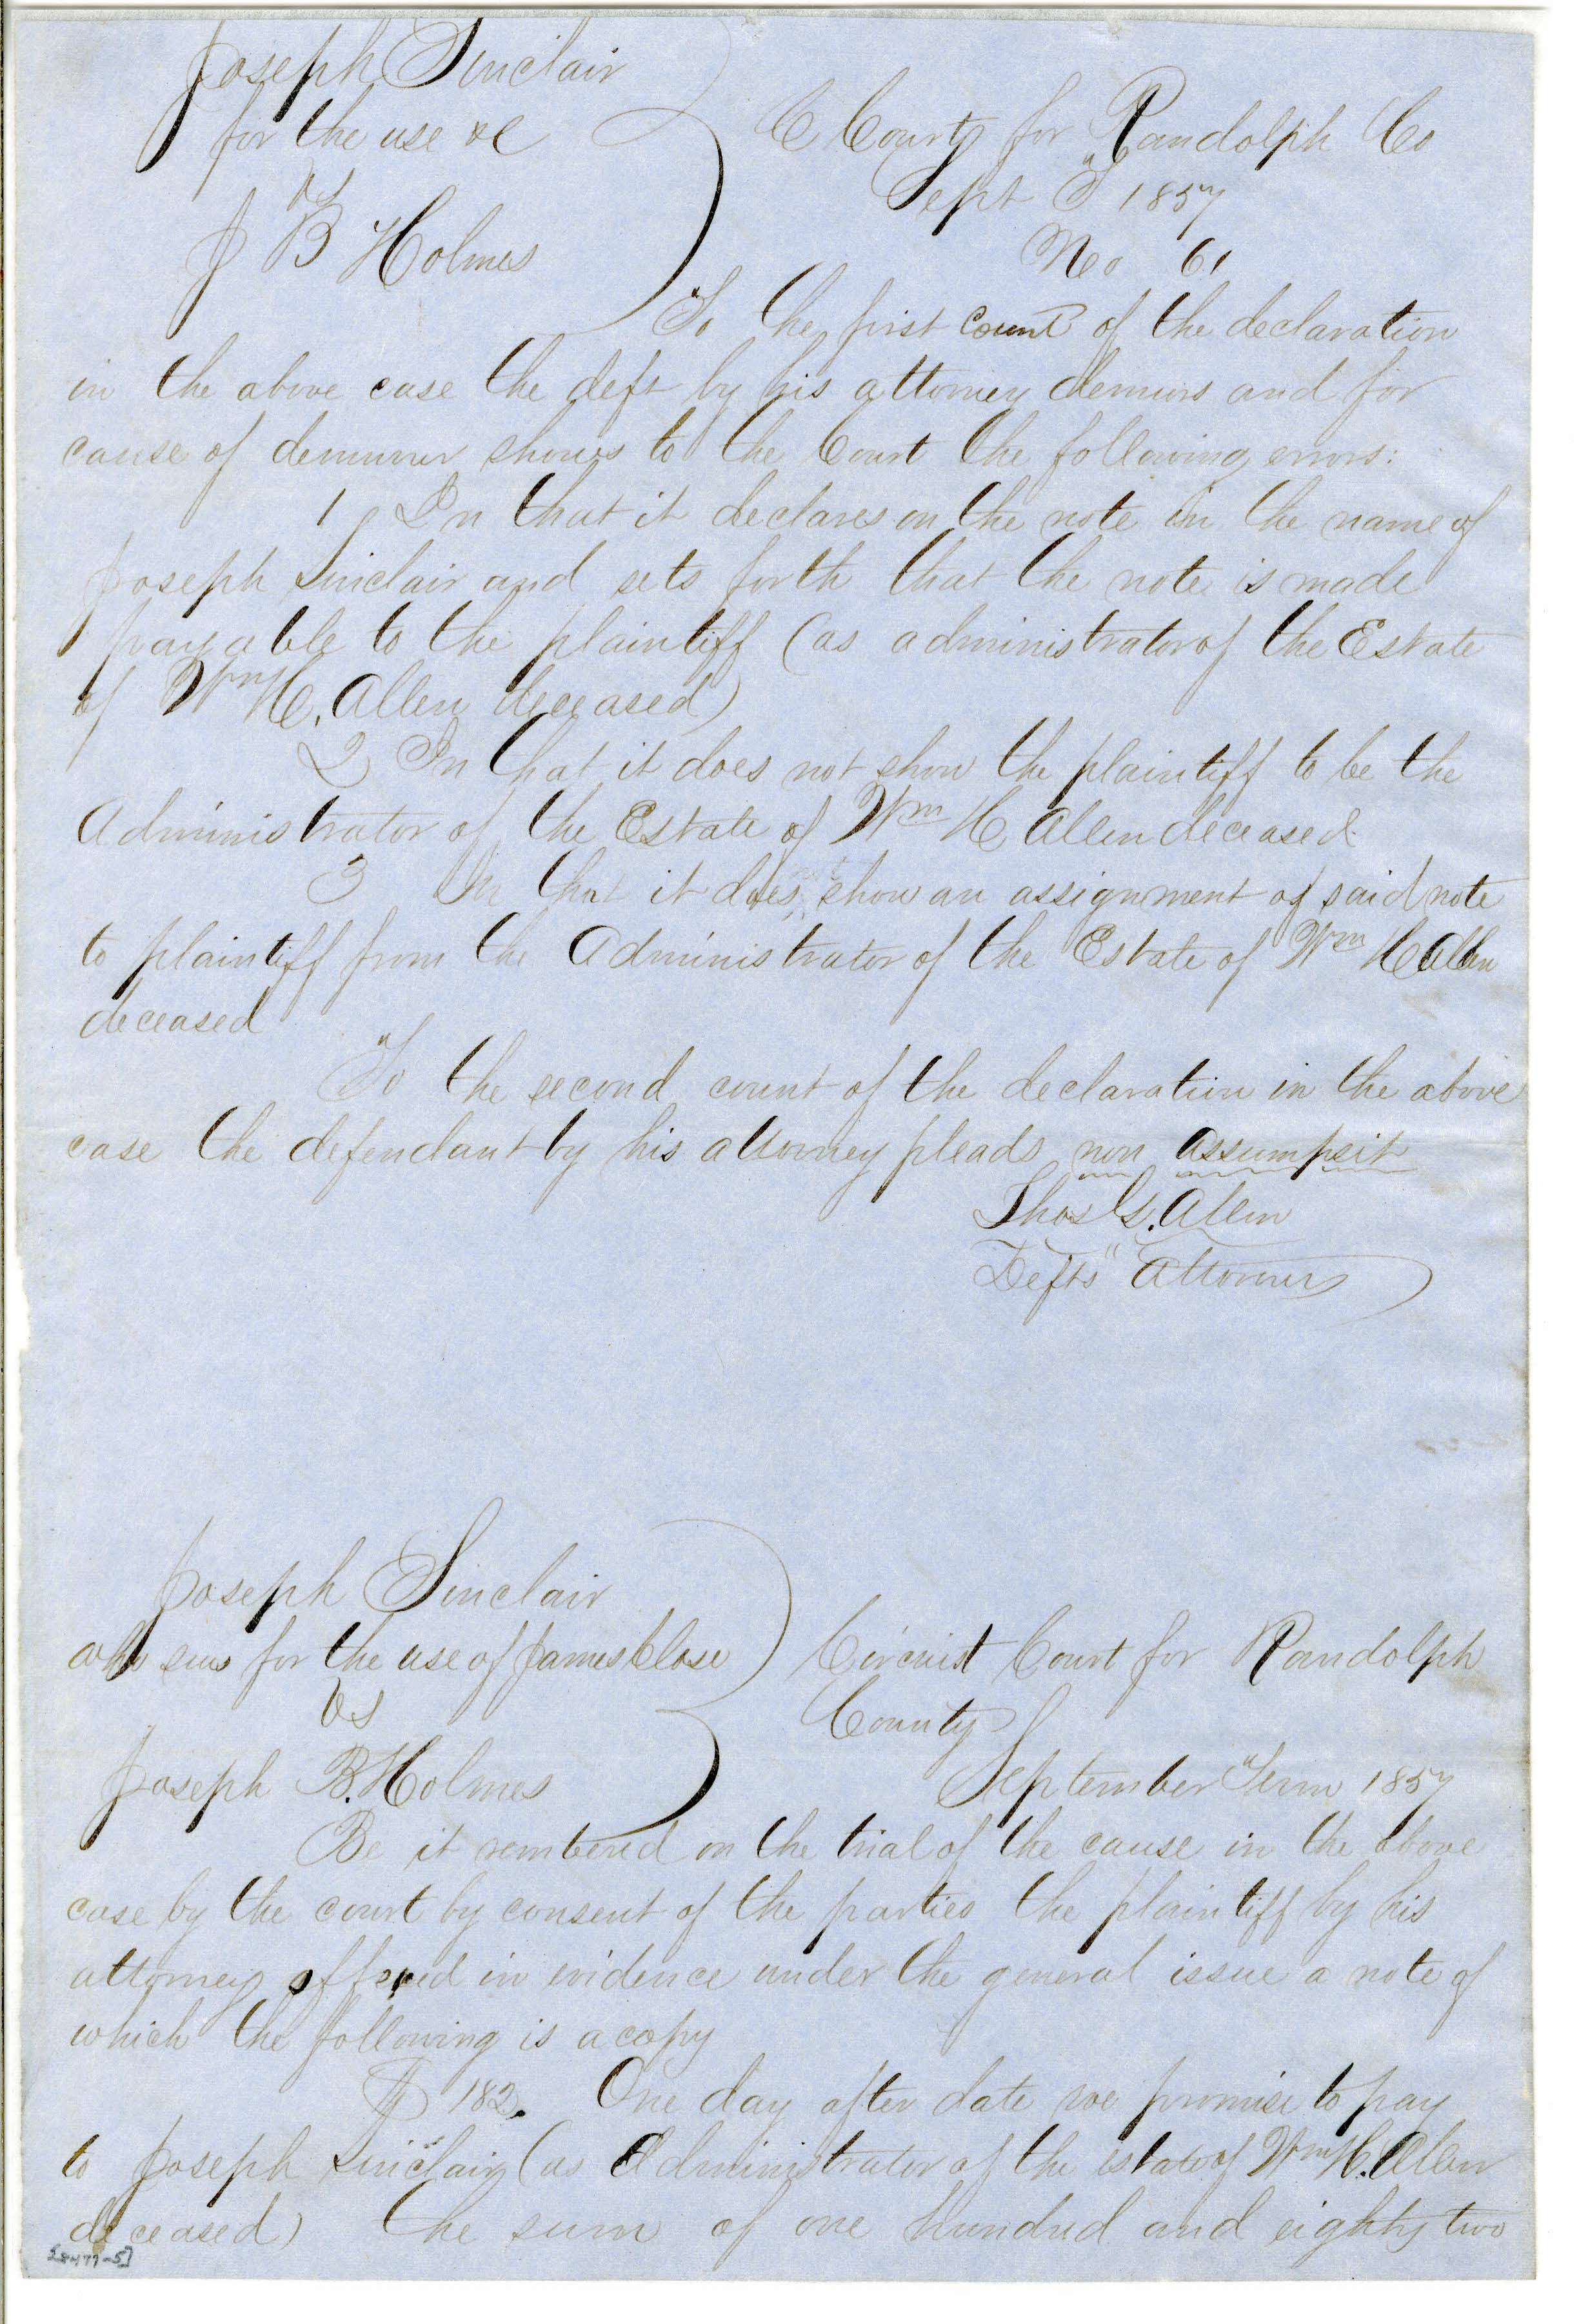 Joseph Sinclair
for the use &c
vs
J B Holmes
C Court for Randolph Co
Sept T 1857
No 61
To the first count of the declaration
in the above case the deft by his attorney demurs and for
cause of demurrer shows to the Court the following errors:
1 In that it declares on the note in the name of
Joseph Sinclair and sets forth that the note is made
payable to the plaintiff (as administrator of the Estate
of Wm H. Allen deceased)
2 In that it does not show the plaintiff to be the
Administrator of the Estate of Wm H Allen deceased
3 In that it does show an assignment of said note
to plaintiff from the Administrator of the Estate of Wm H Allen
deceased
To the second count of the declaration in the above
case the defendant by his attorney pleads non assumpsit
Thos G. Allen
Defts Attorney
Joseph Sinclair
who sues for the use of James Close
vs
Joseph B. Holmes
Circuit Court for Randolph
County
September Term 1857
Be it rembered on the trial of the cause in the above
case by the court by consent of the parties the plaintiff by his
attorney offered in evidence under the general issue a note of
which the following is a copy
$ 182. One day after date we promise to pay
to Joseph Sinclair (as Administrator of the estate of Wm H. Allen
deceased) the sum of one hundred and eighty two